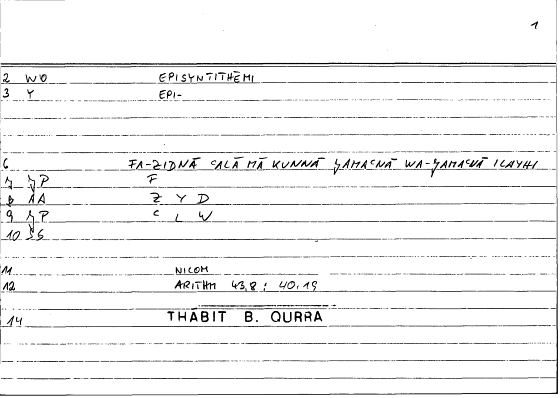 1
2 WO EPISYNTITHĒMI
3 Y EPI-
6 FA-ZIDNĀ ᶜALĀ MĀ KUNNĀ ǦAMAᶜNĀ WA-ǦAMAᶜNĀ ILAYHI
7 ǦP F
8 AA Z Y D
9 ǦP ᶜ L W
10 SS
11 NICOM
12 ARITHM 43,8 ; 40,19
14 THĀBIT B. QURRA